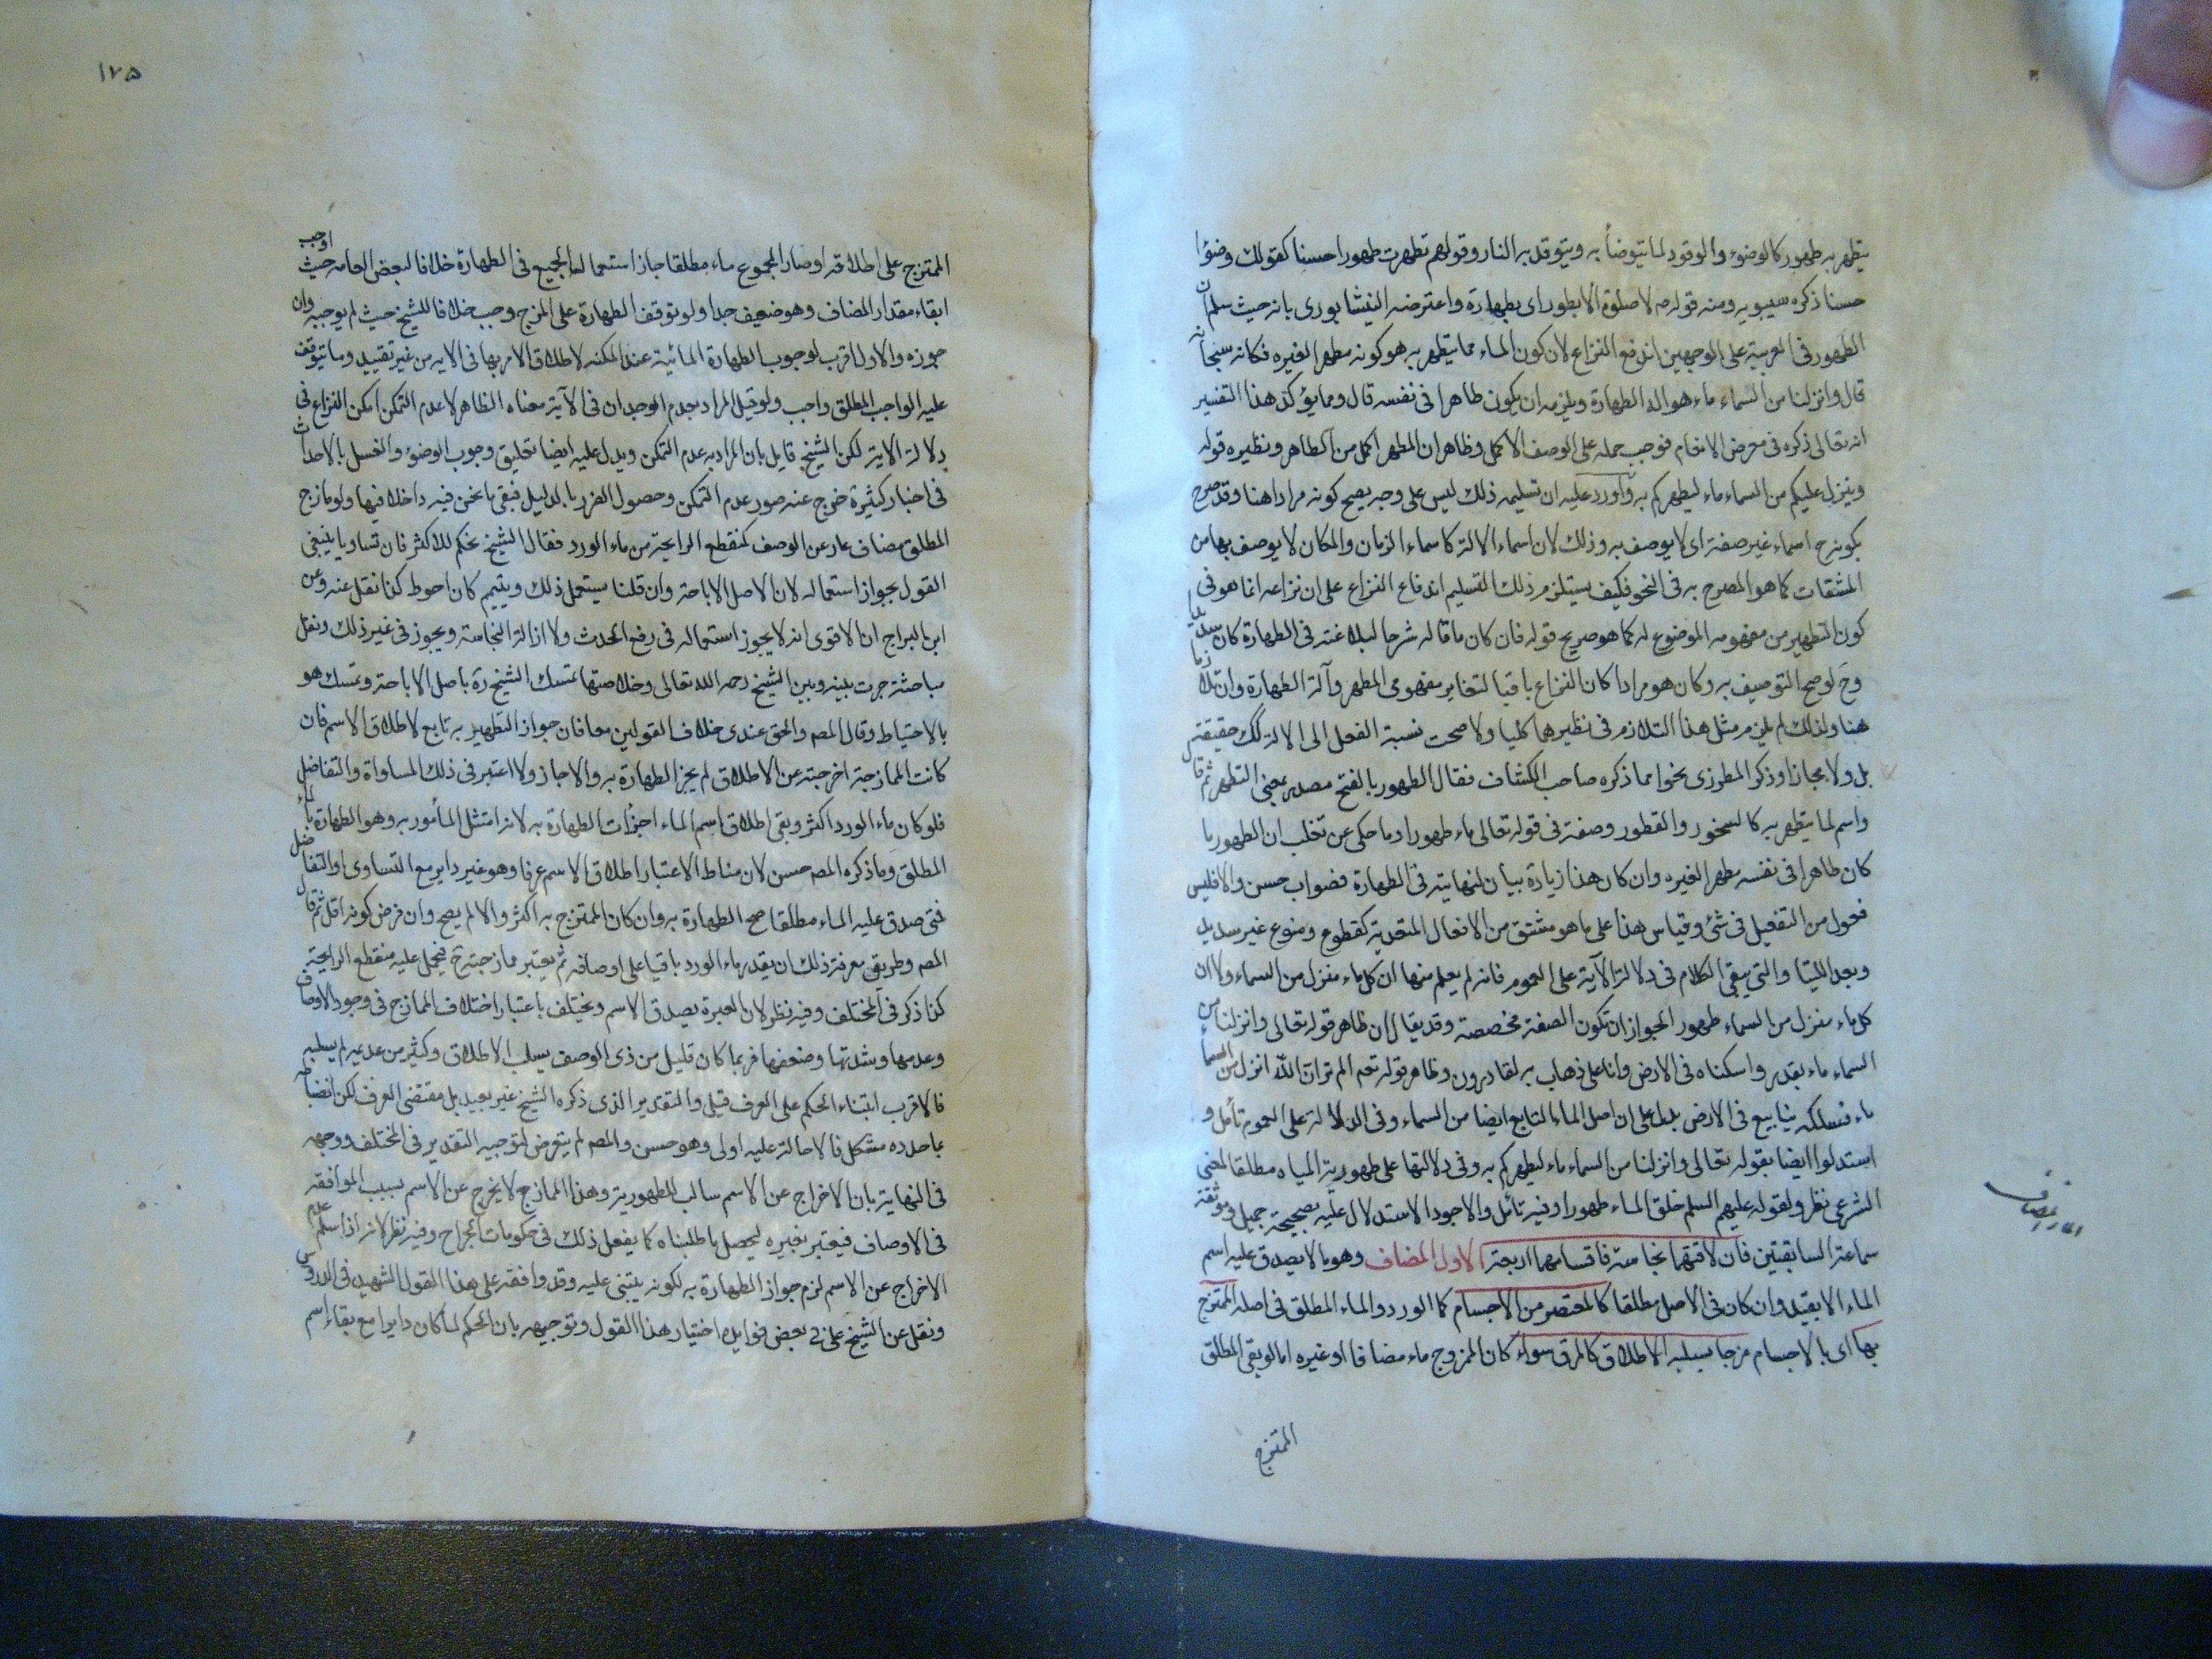 يتطهر به طهور كالوضوء والوقود لما يتوضأ به ويتوقد به النار وقولهم تطهرت طهورا حسنا كقولك وضوءا
حسنا ذكره سيبويه ومنه قوله ص لا صلوة الا بطهور اى بطهارة واعترضه النيشابورى بانه حيث سلم ان
الطهور فى العربية على الوجهين اندفع النزاع لان كون الماء مما يتطهر به هو كونه مطهرا لغيره فكانه سبحانه
قال وانزلنا من السماء ماء هو الة الطهارة ويلزمه ان يكون طاهرا فى نفسه قال ومما يؤكد هذا التفسير
انه تعالى ذكره فى معرض الانعام فوجب حمله على الوصف الاكمل وظاهر ان المطهر اكمل من الطاهر ونظيره قوله
وينزل عليكم من السماء ماء ليطهركم به واورد عليه ان تسليمه ذلك ليس على وجه يصح كونه مرادا هنا وقد صرح
بكونه ح اسماء غير صفة اى لا يوصف به وذلك لان اسماء الالة كاسماء الزمان والمكان لا يوصف بها من
المشتقات كما هو المصرح به فى النحو فكيف يستلزم ذلك التسليم اندفاع النزاع على ان نزاعه انما هو فى
كون التطهير من مفهومه الموضوع له كما هو صريح قوله فان كان ما قاله شرحا لبلاغته فى الطهارة كان سديدا
وح لو صح التوصيف به وكان هو مرادا كان النزاع باقيا لتغاير مفهومى المطهر وآلة الطهارة وان تلازما
هنا ولذلك لم يلزم مثل هذا التلازم فى نظيرهما كليا ولا صحت نسبة الفعل الى الالة كك حقيقة
بل ولا مجازا وذكر المطرزى نحوا مما ذكره صاحب الكشاف فقال الطهور بالفتح مصدر بمعنى التطهر ثم قال
واسم لما يتطهر به كالسحور والفطور وصفة فى قوله تعالى ماء طهورا وما حكى عن ثعلب ان الطهور ما
كان طاهرا فى نفسه مطهرا لغيره وان كان هذا زيادة بيان لنهايته فى الطهارة فصواب حسن والا فليس
فعول من التفعيل فى شئ وقياس هذا على ما هو مشتق من الافعال المتعدية كقطوع ومنوع غير سديد
وبعد اللتيا والتى يبقى الكلام فى دلالة الآية على العموم فانه لم يعلم منها ان كل ماء منزل من السماء ولا ان
كل ماء منزل من السماء طهور لجواز ان تكون الصفة مخصصة وقد يقال ان ظاهر قوله تعالى وانزلنا من
السماء ماء بقدر واسكناه فى الارض وانا على ذهاب به لقادرون وظاهر قوله تع الم تر ان الله انزل من السماء
ماء فسلكه ينابيع فى الارض يدل على ان اصل الماء النابع ايضا من السماء وفى الدلالة على العموم تأمل و
استدلوا ايضا بقوله تعالى وانزلنا من السماء ماء ليطهركم به وفى دلالتها على طهورية المياه مطلقا لمعنى
الشرعى نظر ولقوله عليهم السلم خلق الماء طهورا وفيه تأمل والاجود الاستدلال عليه بصحيحة جميل وموثقة
سماعة السابقتين فان لاقتهما نجاسة فاقسامهما اربعة الاول المضاف وهو ما لا يصدق عليه اسم
الماء الا بقيد وان كان فى الاصل مطلقا كالمعتصر من الاجسام كالورد والماء المطلق فى اصله الممتزج
بها اى بالاجسام مزجا يسلبه الاطلاق كالمرق سواء كان الممزوج ماء مضافا او غيره اما لو بقى المطلق
الممتزج
١٧٥
الممتزج على اطلاقه او صار المجموع ماء مطلقا جاز استعماله الجميع فى الطهارة خلافا لبعض العامه حيث اوجب
ابقاء مقدار المضاف وهو ضعيف جدا ولو توقف الطهارة على المزج وجب خلافا للشيخ حيث لم يوجبه وان
جوزه والاول اقرب لوجوب الطهارة المائية عند المكنة لاطلاق الامر بها فى الايه من غير تقييد وما يتوقف
عليه الواجب المطلق واجب ولو قيل المراد بعدم الوجدان فى الآية معناه الظاهر لا عدم التمكن امكن النزاع فى
دلالة الاية لكن الشيخ قايل بان المراد به عدم التمكن ويدل عليه ايضا تعليق وجوب الوضوء والغسل بالاحداث
فى اخبار كثيرة خرج عنه صور عدم التمكن وحصول الضرر بالدليل فبقى ما نحن فيه داخلا فيها ولو مازج
المطلق مضاف عار عن الوصف كمنقطع الرايحة من ماء الورد فقال الشيخ بحكم للاكثر فان تساويا ينبغى
القول بجواز استعماله لان الاصل الاباحة وان قلنا يستعمل ذلك ويتيمم كان احوط كذا نقل عنه وعن
ابن البراج ان الاقوى انه لا يجوز استعماله فى رفع الحدث ولا ازالة النجاسة ويجوز فى غير ذلك ونقل
مباحثة جرت بينه وبين الشيخ رحمه الله تعالى وخلاصتها تمسك الشيخ ره باصل الاباحة وتمسك هو
بالاحتياط وقال المصـ والحق عندى خلاف القولين معا فان جواز التطهير به تابع لاطلاق الاسم فان
كانت الممازجة اخرجته عن الاطلاق لم يجز الطهارة به والا جاز ولا اعتبر فى ذلك المساواة والتفاضل
فلو كان ماء الورد اكثر وبقى اطلاق اسم الماء اجزأت الطهارة به لانه امتثل المأمور به وهو الطهارة بالماء
المطلق وما ذكره المصـ حسن لان مناط الاعتبار اطلاق الاسم عرفا وهو غير داير مع التساوى او التفاضل
فمتى صدق عليه الماء مطلقا صح الطهارة به وان كان الممتزج به اكثر والا لم يصح وان فرض كونه اقل ثم قال
المصـ وطريق معرفة ذلك ان يقدر ماء الورد باقيا على اوصافه ثم يعتبر ممازجته ح فيحمل عليه منقطع الرايحة
كذا ذكر فى المختلف وفيه نظر لان العبرة بصدق الاسم ويختلف باعتبار اختلاف الممازج فى وجود الاوصاف
وعدمها وشدتها وضعفها فربما كان قليل من ذى الوصف يسلب الاطلاق وكثير من عديمه لم يسلبه
فالاقرب ابتناء الحكم على العرف قيل والتقدير الذى ذكره الشيخ غير بعيد بل مقتضى العرف لكن انضباطه
بما حدده مشكل فالاحالة عليه اولى وهو حسن والمصـ لم يتعرض لتوجيه التقدير فى المختلف ووجهه
فى النهاية بان الاخراج عن الاسم سالب للطهورية وهذا الممازج لا يخرج عن الاسم بسبب الموافقة
فى الاوصاف فيعتبر بغيره ليحصل ما طلبناه كما يفعل ذلك فى حكومات الجراح وفيه نظر لانه اذا سلم عدم
الاخراج عن الاسم لزم جواز الطهارة به لكونه يبتنى عليه وقد وافقه على هذا القول الشهيد فى الدروس
ونقل عن الشيخ على فى بعض فوايده اختيار هذا القول وتوجيهه بان الحكم لما كان دايرا مع بقاء اسم